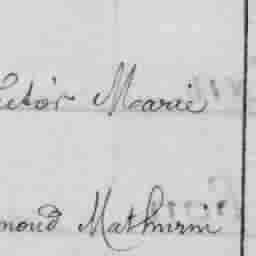 ictor Marie
mond Mathurin